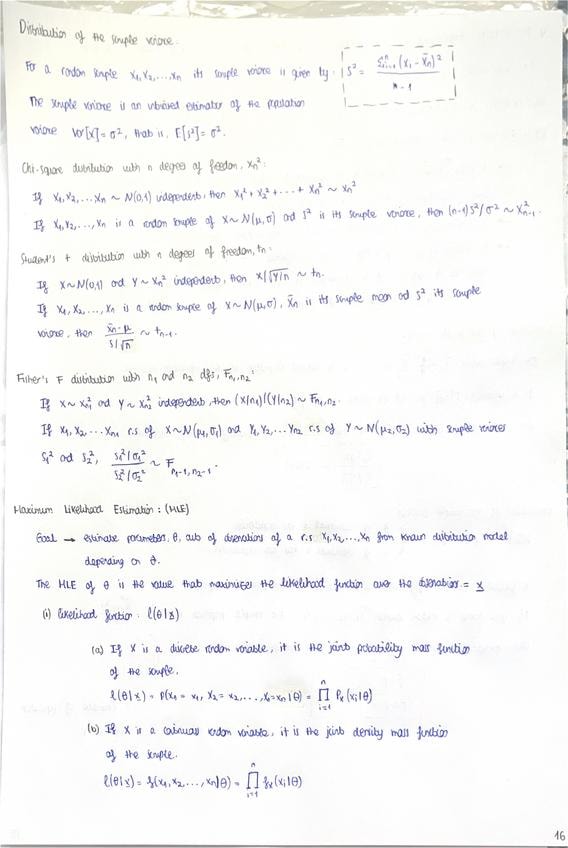 Distribution of the sample variance:
For a random sample X₁, X₂, ..., Xₙ its sample variance is given by: S² = Σⁿᵢ₌₁ (Xᵢ - X̄ₙ)² / n-1
The sample variance is an unbiased estimator of the population
variance Var[X] = σ², that is, E[S²] = σ².
Chi-square distribution with n degrees of freedom, χₙ²:
If X₁, X₂, ..., Xₙ ~ N(0,1) independents, then X₁² + X₂² + ... + Xₙ² ~ χₙ²
If X₁, X₂, ..., Xₙ is a random sample of X ~ N(μ, σ) and S² is its sample variance, then (n-1)S²/σ² ~ χ²ₙ₋₁.
Student's t distribution with n degrees of freedom, tₙ:
If X ~ N(0,1) and Y ~ χₙ² independents, then X/√(Y/n) ~ tₙ.
If X₁, X₂, ..., Xₙ is a random sample of X ~ N(μ, σ), X̄ₙ is its sample mean and S² its sample
variance, then (X̄ₙ - μ) / (S/√n) ~ tₙ₋₁.
Fisher's F distribution with n₁ and n₂ dfs, Fn₁,n₂:
If X ~ χ²n₁ and Y ~ χ²n₂ independents, then (X/n₁)/(Y/n₂) ~ Fn₁,n₂.
If X₁, X₂, ... Xn₁ r.s of X ~ N(μ₁, σ₁) and Y₁, Y₂, ... Yn₂ r.s of Y ~ N(μ₂, σ₂) with sample variances
S₁² and S₂², (S₁²/σ₁²) / (S₂²/σ₂²) ~ F n₁-1, n₂-1.
Maximum Likelihood Estimation: (MLE)
Goal → estimate parameters, θ, out of observations of a r.s X₁, X₂, ..., Xₙ from known distribution model
depending on θ.
The MLE of θ is the value that maximizes the likelihood function over the observations = x
(i) likelihood function: l(θ|x)
(a) If X is a discrete random variable, it is the joint probability mass function
of the sample.
l(θ|x) = P(X₁ = x₁, X₂ = x₂, ..., Xₙ = xₙ|θ) = ∏ⁿᵢ₌₁ Pₓ(xᵢ|θ)
(b) If X is a continuous random variable, it is the joint density mass function
of the sample.
l(θ|x) = f(x₁, x₂, ..., xₙ|θ) = ∏ⁿᵢ₌₁ fₓ(xᵢ|θ)
16